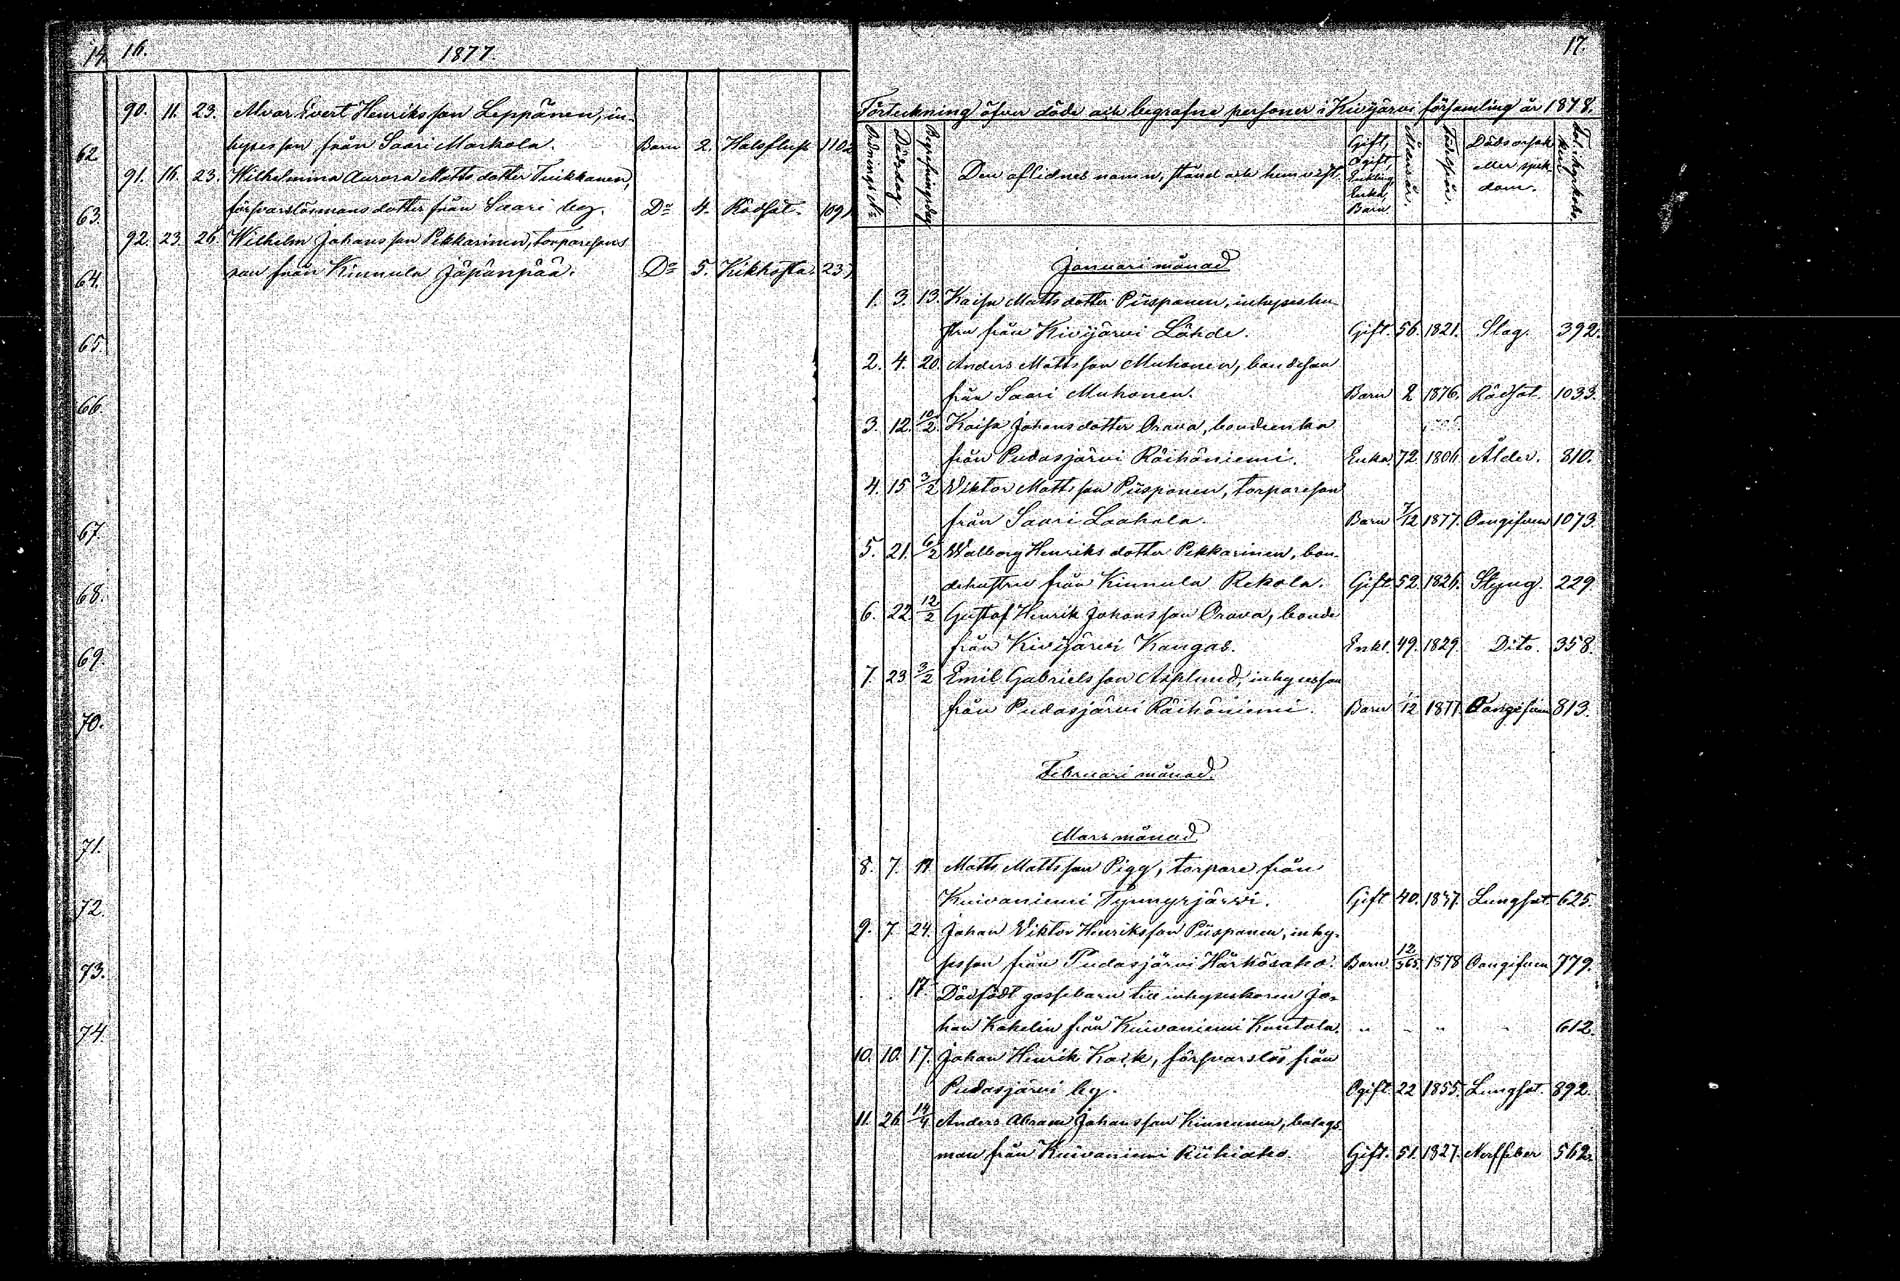 14. 16. 1877.
62
63.
64.
65.
66.
67.
68.
69.
70.
71.
72.
73.
74.
90. 11. 23. Alvar Evert Henriksson Leppänen, in-
hysesson från Saari Markola. Barn 2. Halsfluss 1102
91. 16. 23. Wilhelmina Aurora Matts dotter
försvarslösmans dotter från Saari by. Do 4. Rödsot. 1091
92. 23. 26 Wilhelm Johansson Pekkarinen, torparesons
son från Kinnula Jäpänpää. Do 5. Kikhosta. 237
17.
Förteckning öfver döde och begrafne personer i Kivijärvi församling år 1878.
Ordnings No Dödsdag. Begrafningsdag Den aflidnes namn, stånd och hemvist. Gift, Ogift, Enkling, Enka, Barn Ålders år. Födelseår. Dödsorsak eller sjukdom.
Januari månad
1. 3. 13. Kaisa Mattsdotter Piispanen, inhyseshu-
stru från Kivijärvi Lähde. Gift. 56. 1821. Slag. 392.
2. 4. 20. Anders Mattsson Muhonen, bondeson
från Saari Muhonen. Barn 2 1876. Rödsot. 1033.
3. 12. 10/2. Kaisa Johansdotter Orava, bondeenka
från Pudasjärvi Räihäniemi. Enka. 72. 1806 Ålder. 810.
4. 15 3/2 Viktor Mattsson Piisponen, torpareson
från Saari Laahala. Barn 7/12 1877. Oangifven 1073.
5. 21. 6/2 Walborg Henriksdotter Pekkarinen, bon-
dehustru från Kinnula Rekola. Gift 52. 1826. Styng. 229
6. 22. 12/2 Gustaf Henrik Johansson Orava, bonde
från Kivijärvi Kangas. Enkl. 49. 1829. Dito. 358.
7. 23 3/2 Emil Gabrielsson Asplund, inhysesson
från Pudasjärvi Räihäniemi. Barn 1/12 1877. Oangifven 813.
Februari månad.
Mars månad
8. 7. Matts Mattsson Pigg, torpare från
Kuivaniemi Tynnyrjärvi. Gift 40. 1837. Lungsot 625.
9. 7. 24. Johan Viktor Henriksson Piispanen, inhy-
sesson från Pudasjärvi Härkösaho. Barn 12/365. 1878 Oangifven 779.
17. Dödfödt gossebarn till inhyseskaren Jo-
han Kakelin från Kuivaniemi Kantola. " " " " 612.
10. 10. 17. Johan Henrik Kack, försvarslös från
Pudasjärvi by. Ogift. 22 1855. Lungsot. 892.
11. 26 14/4 Anders Abram Johansson Kinnunen, bolags
man från Kuivaniemi Riihiaho. Gift. 51. 1827. Nerffeber 562.